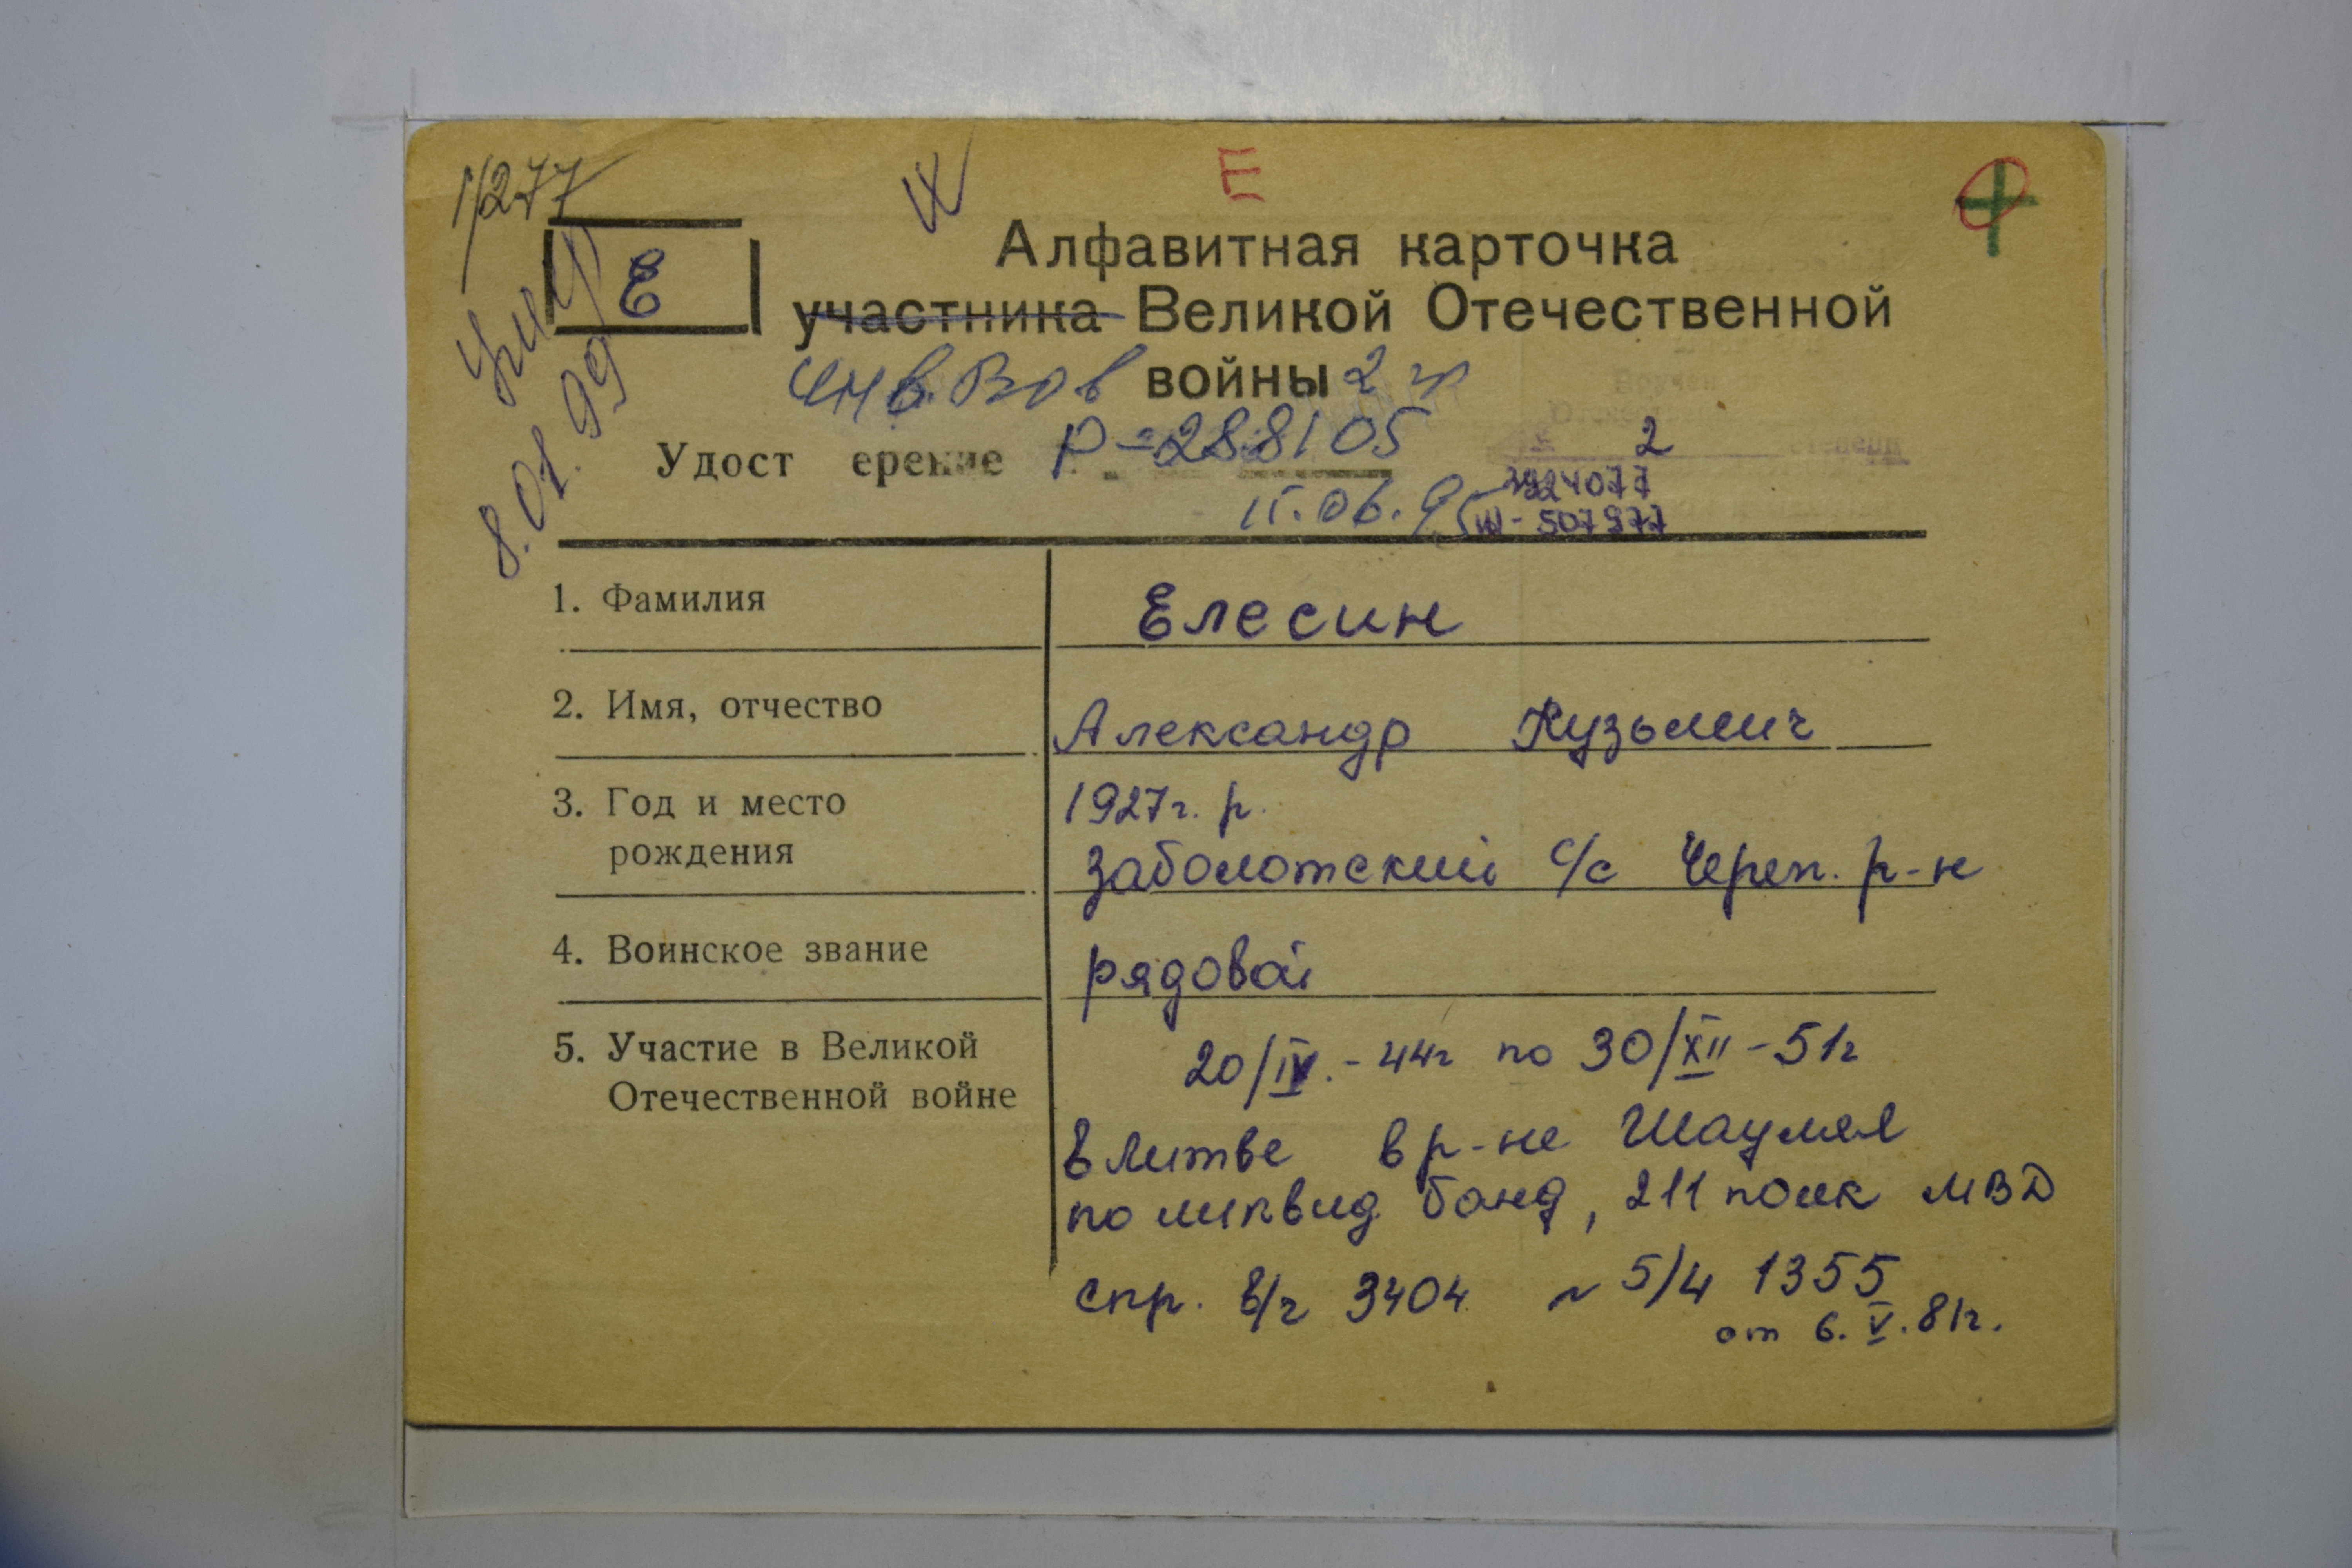 1/277
IX
Е
Е
Алфавитная карточка
участника Великой Отечественной
инв. Вов войны 2 гр
Удост ерение Р-288105
2
8.01.99
15.06.95
507977
1. Фамилия Елесин
2. Имя, отчество Александр Кузьмич
3. Год и место 1927г. р.
рождения Заболотский с/с Череп. р-н
4. Воинское звание рядовой
5. Участие в Великой 20/IV.-44г по 30/XII-51г
Отечественной войне
в Литве в р-не Шауляя
по ликвид банд, 211 полк МВД
спр. в/ч 3404 № 5/4 1355
от 6.V.81г.